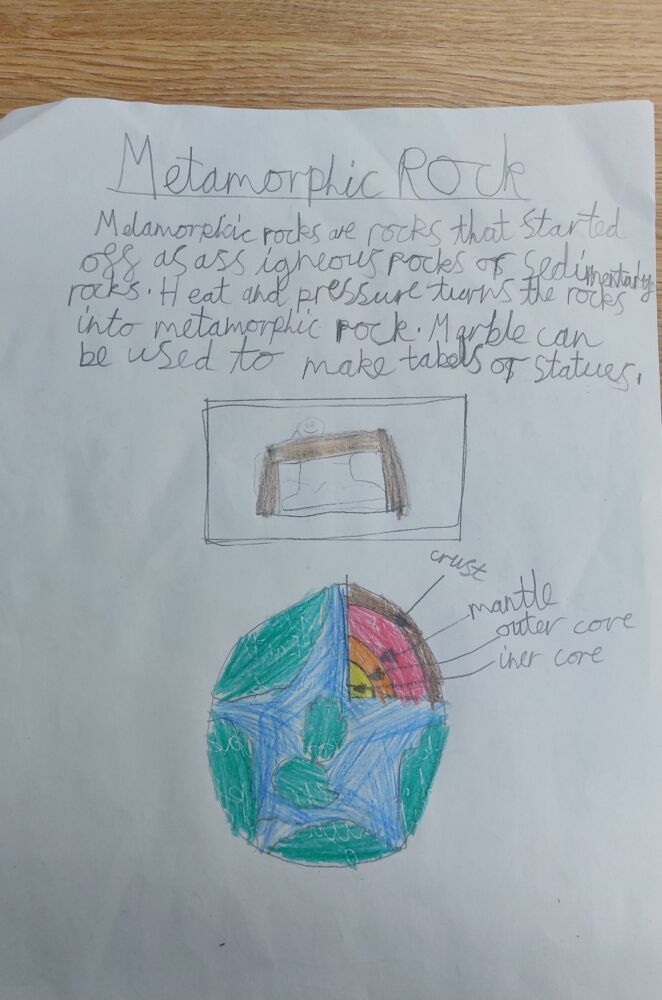 Metamorphic Rock
Metamorphic rocks are rocks that started
off as ass igneous rocks or sedimentary
rocks. Heat and pressure turns the rocks
into metamorphic rock. Marble can
be used to make tabels or statues.
crust
mantle
outer core
iner core